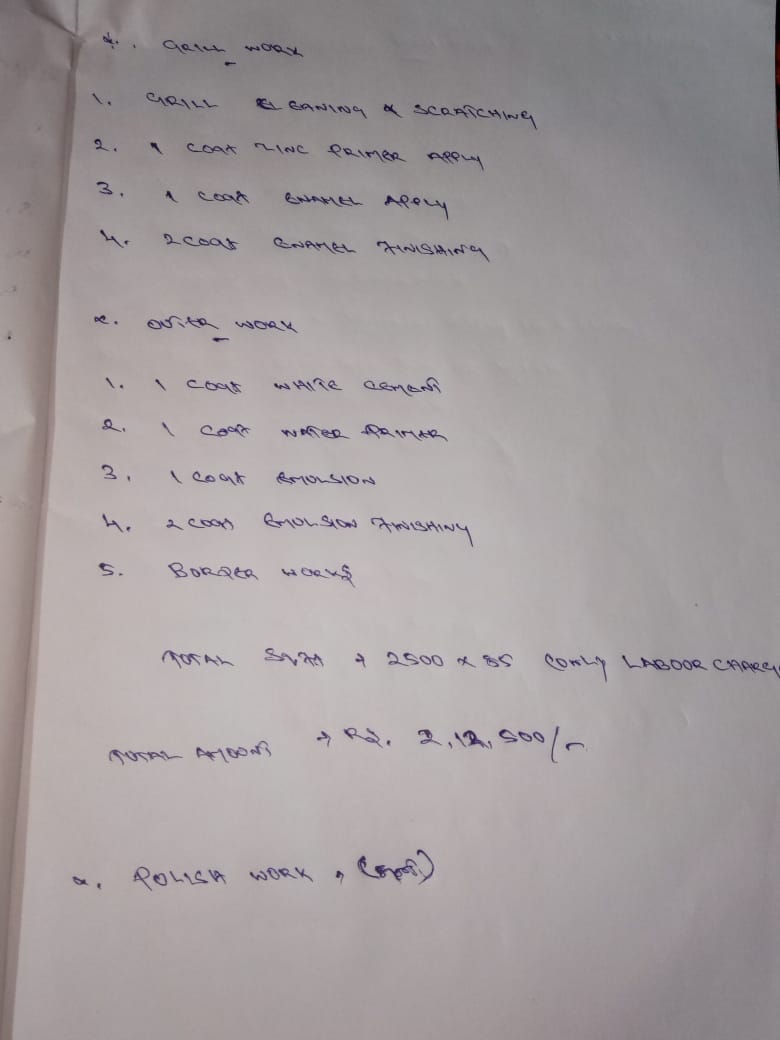 *. GRILL WORK
1. GRILL CLEANING & SCRATCHING
2. 1 COAT ZINC PRIMER APPLY
3. 1 COAT ENAMEL APPLY
4. 2 COAT ENAMEL FINISHING
*. OUTER WORK
1. 1 COAT WHITE CEMENT
2. 1 COAT WATER PRIMER
3. 1 COAT EMOLSION
4. 2 COAT EMOLSION FINISHING
5. BORDER WORKS
TOTAL SQFT → 2500 x 85 (ONLY LABOOR CHARG
TOTAL AMOONT → RS. 2,12,500/-
*. POLISH WORK, (தனி)